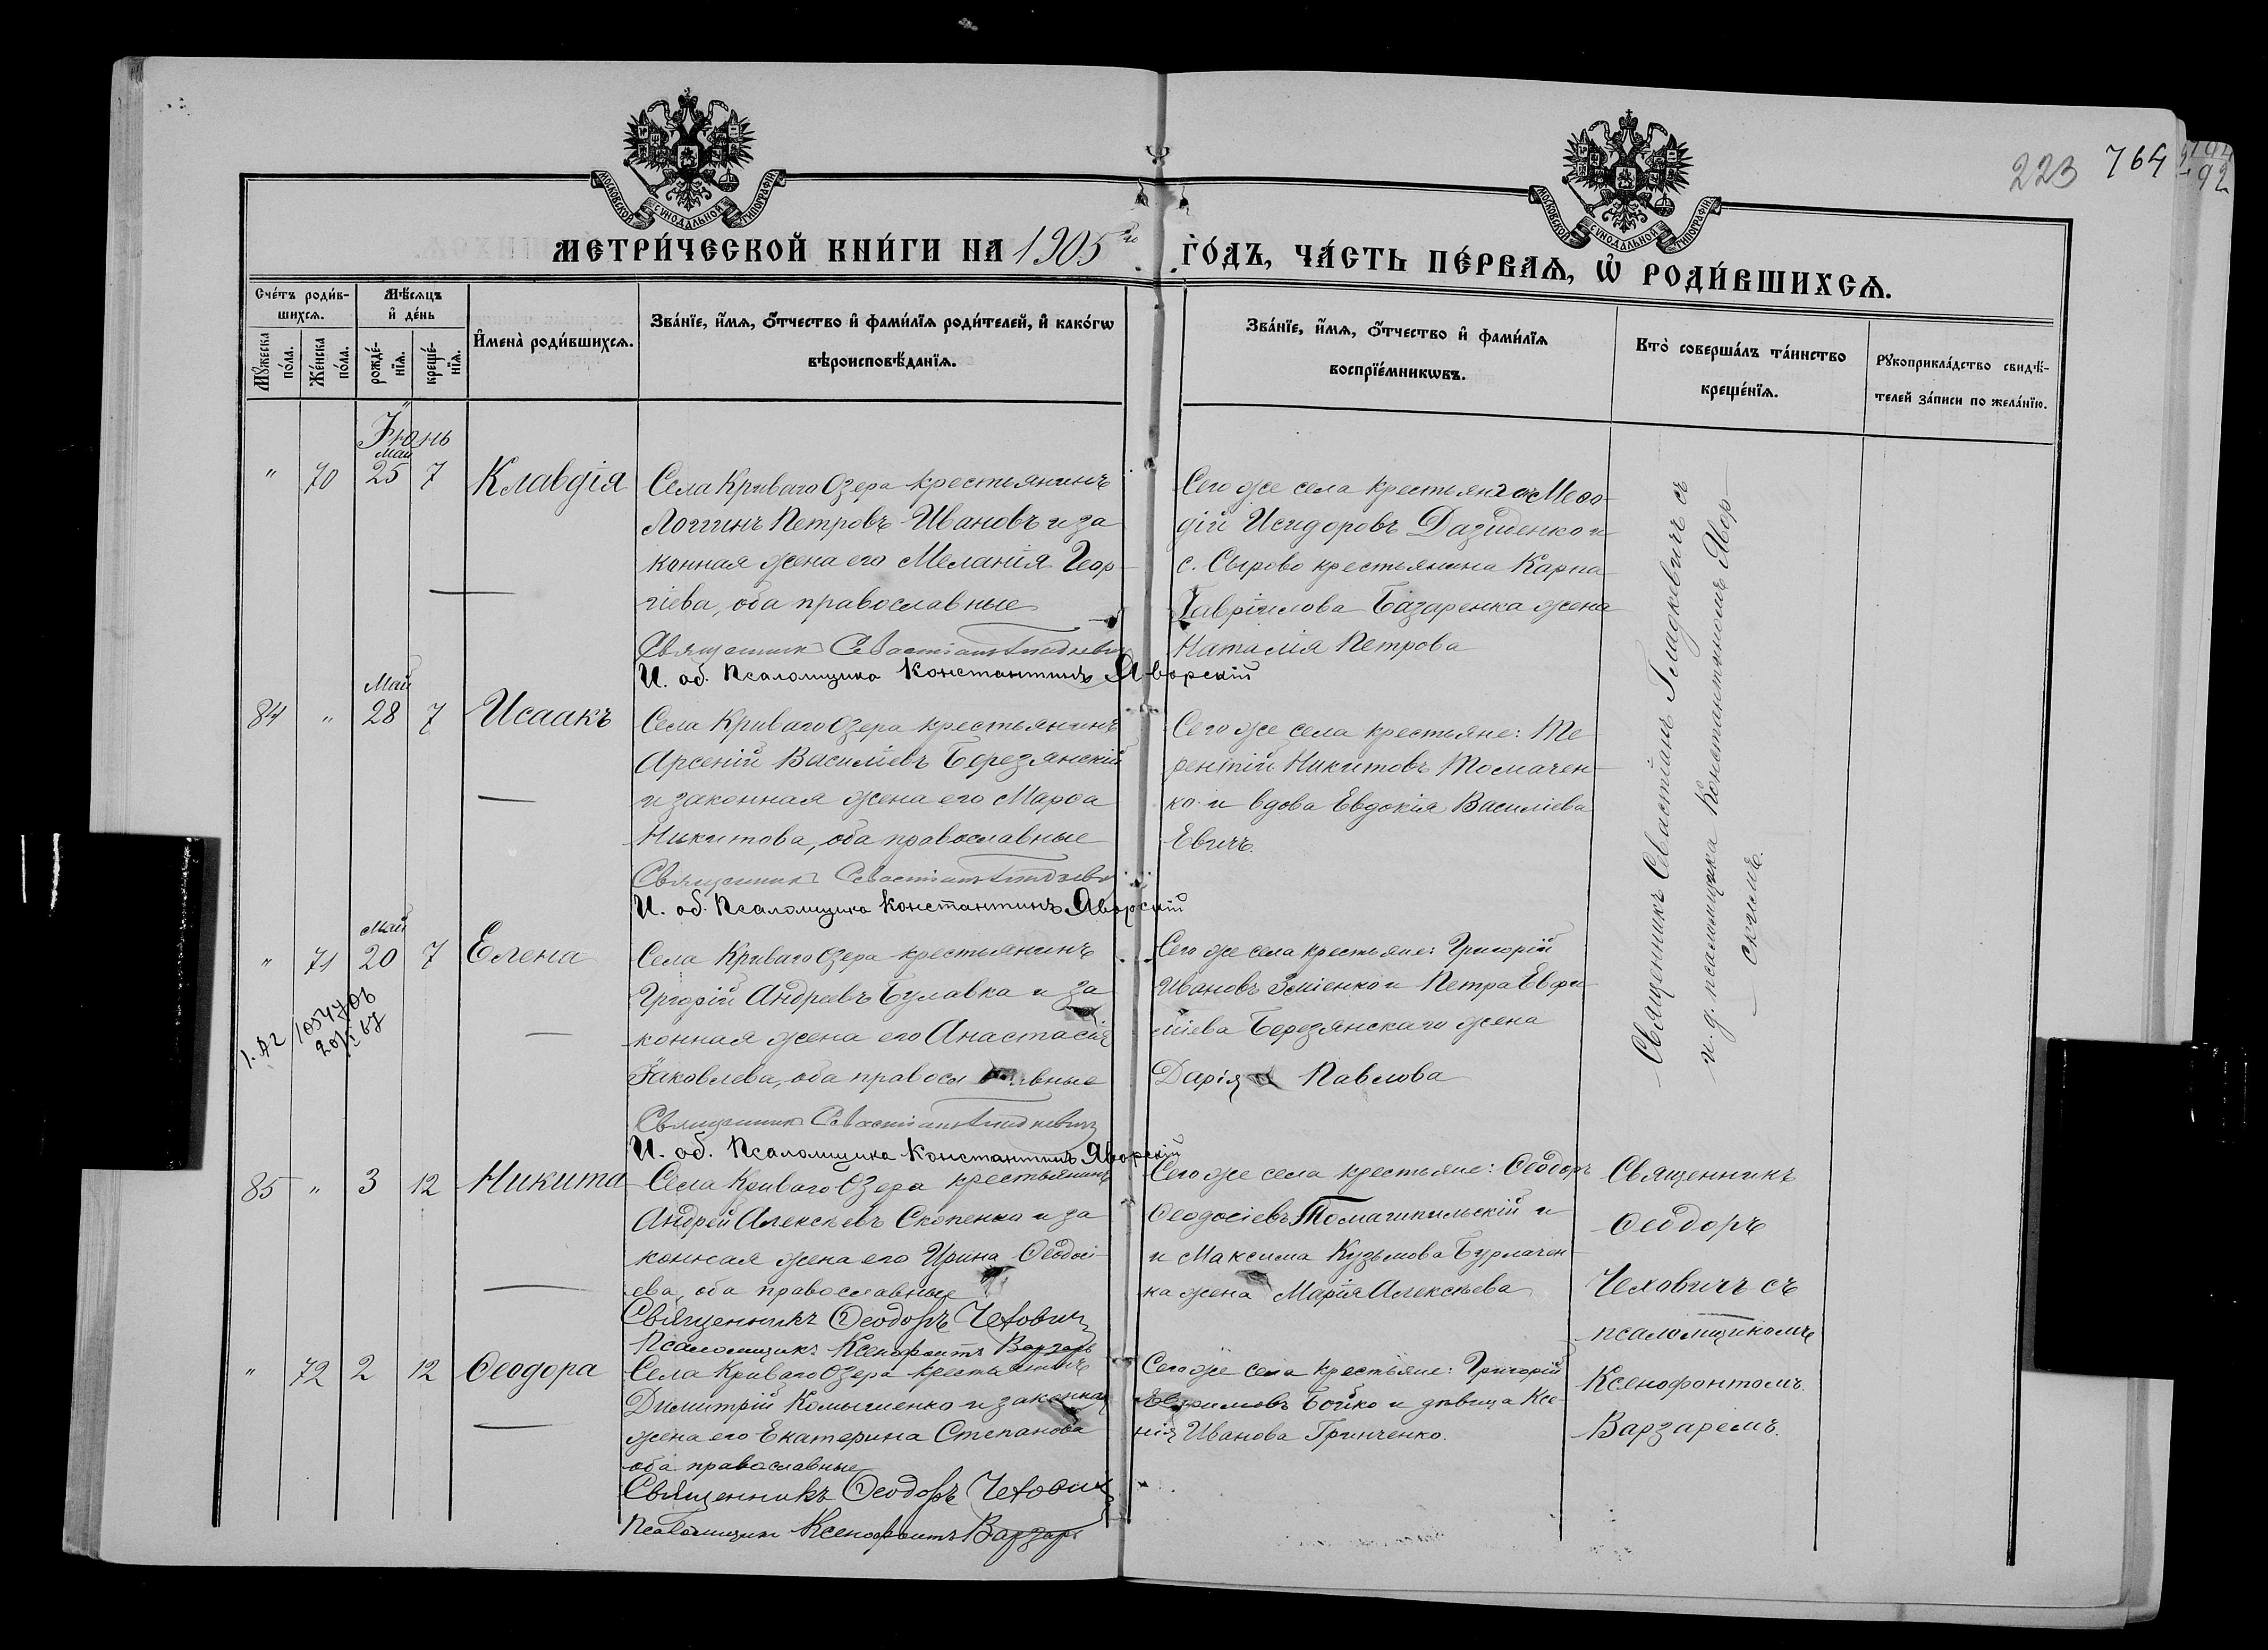 223 764
92
МОСКОВСКОЙ СѴНОДАЛЬНОЙ ТИПОГРАФІИ
МОСКОВСКОЙ СѴНОДАЛЬНОЙ ТИПОГРАФІИ
МЕТРИ́ЧЕСКОЙ КНИ́ГИ НА 1905го ГО́ДЪ, ЧА́СТЬ ПЕ́РВАѦ, Ѡ҆ РОДИ́ВШИХСѦ.
Сче́тъ роди́в-
шихсѧ.
Мꙋжеска по́ла.
Же́нска по́ла.
Мѣ́сѧцъ
и҆ де́нь
рожде́-
нїѧ.
креще́-
нїѧ.
И҆мена̀ роди́вшихсѧ.
Зва́нїе, и҆́мѧ, ѻ҆́тчество и҆ фами́лїѧ роди́телей, и҆ како́гѡ
вѣроисповѣ́данїѧ.
Зва́нїе, и҆́мѧ, ѻ҆́тчество и҆ фами́лїѧ
воспрїе́мникѡвъ.
Кто̀ соверша́лъ та́инство
креще́нїѧ.
Рꙋкоприкла́дство свидѣ́-
телей за́писи по жела́нїю.
Іюнь
Май
" 70 25 7 Клавдія
Села Криваго Озера крестьянинъ
Логгинъ Петровъ Ивановъ и за
конная жена его Меланія Геор-
гіева, оба православные
Священникъ Севастіанъ Гладкевичъ
И. об. Псаломщика Константинъ Яворскій
Сего же села крестьянинъ Меѳо-
дій Исидоровъ Дазиденко и
с. Сырово крестьянина Карпа
Гавріилова Базаренка жена
Наталія Петрова
Май
84 " 28 7 Исаакъ
Села Криваго Озера крестьянинъ
Арсеній Василіевъ Березянскій
и законная жена его Марѳа
Никитова, оба православные
Священникъ Севастіанъ Гладкевичъ
И. об. Псаломщика Константинъ Яворскій
Сего же села крестьяне: Те
рентій Никитовъ Томачен-
ко и вдова Евдокія Василіева
Евичъ.
Священникъ Севастіанъ Гладкевичъ съ
и. д. псаломщика Константиномъ Явор-
скимъ.
Май
" 71 20 7 Елена
Села Криваго Озера крестьянинъ
Григорій Андреевъ Булавка и за
конная жена его Анастасія
Іаковлева, оба православные
Священникъ Севастіанъ Гладкевичъ
И. об. Псаломщика Константинъ Яворскій
Сего же села крестьяне: Григорій
Ивановъ Зміенко и Петра Евфи
міева Березянскаго жена
Дарія Павлова
1054706
20/I 67
85 " 3 12 Никита
Села Криваго Озера крестьянинъ
Андрей Алексѣевъ Скопенко и за
конная жена его Ирина Ѳеодосі-
ева, оба православные
Священникъ Ѳеодоръ Чехович
Псаломщикъ Ксенофонтъ Варзарь
Сего же села крестьяне: Ѳеодоръ
Ѳеодосіевъ Томашпильскій и
и Максима Кузьмова Бурлачен-
ка жена Марія Алексѣева
Священникъ
Ѳеодоръ
Чеховичъ съ
псаломщикомъ
Ксенофонтомъ
Варзаремъ.
" 72 2 12 Ѳеодора
Села Криваго Озера крестьянинъ
Димитрій Комышенко и законная
жена его Екатерина Степанова
оба православные
Священникъ Ѳеодоръ Чехович
Псаломщикъ Ксенофонтъ Варзарь
Сего же села крестьяне: Григорій
Бойко и дѣвица Ксе-
нія Иванова Гринченко.